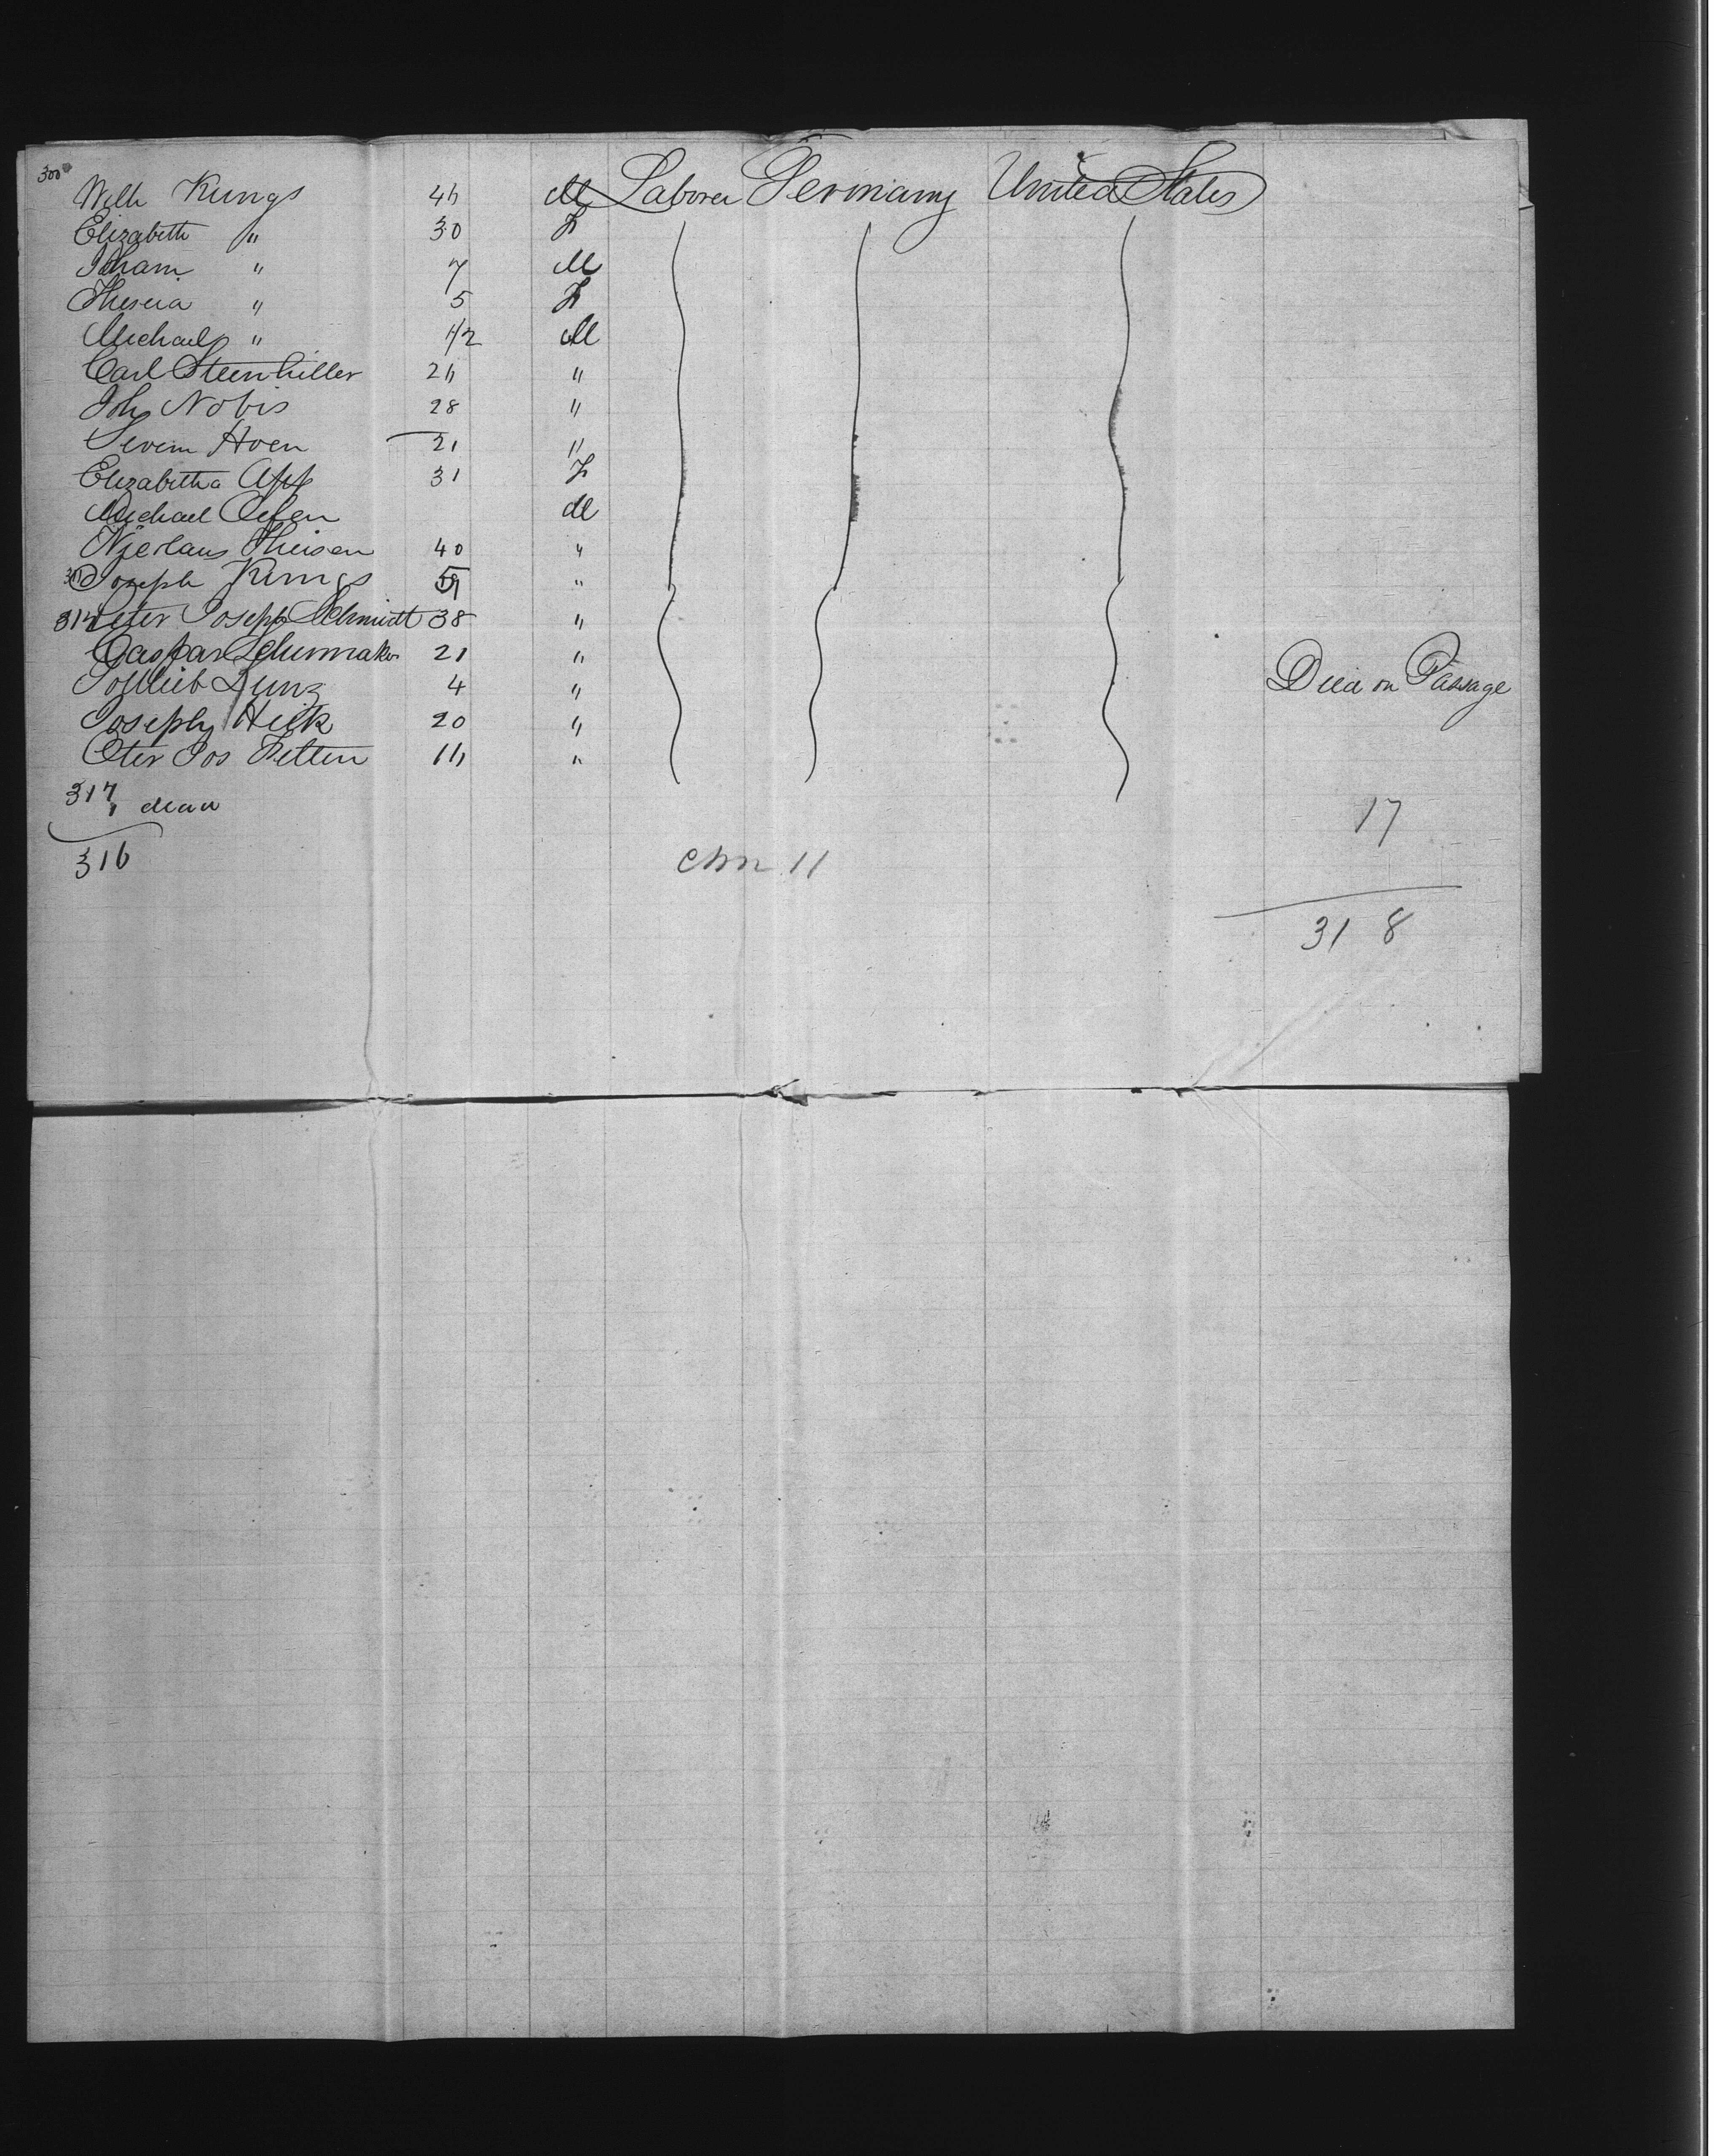 300 Wilh Kungs 45 M Laborer Germany United States
Elizabeth " 30 F
Joham " 7 M
Theresia " 5 F
Michael " 1/2 M
Carl Steinhiller 25 "
Joh Nobis 28 "
Severin Hoen 21 "
Elizabetha App 31 F
Michael M
Nicolaus Theisen 40 "
Joseph Kungs 59 "
312 Peter Joseph Schmidt 38 "
Caspar Schumaker 21 "
Gottlieb Kunz 4 " Died on Passage
Joseph Heck 20 "
Peter Jos Fetten 15 "
317
1 dead 17
316 chn 11
318